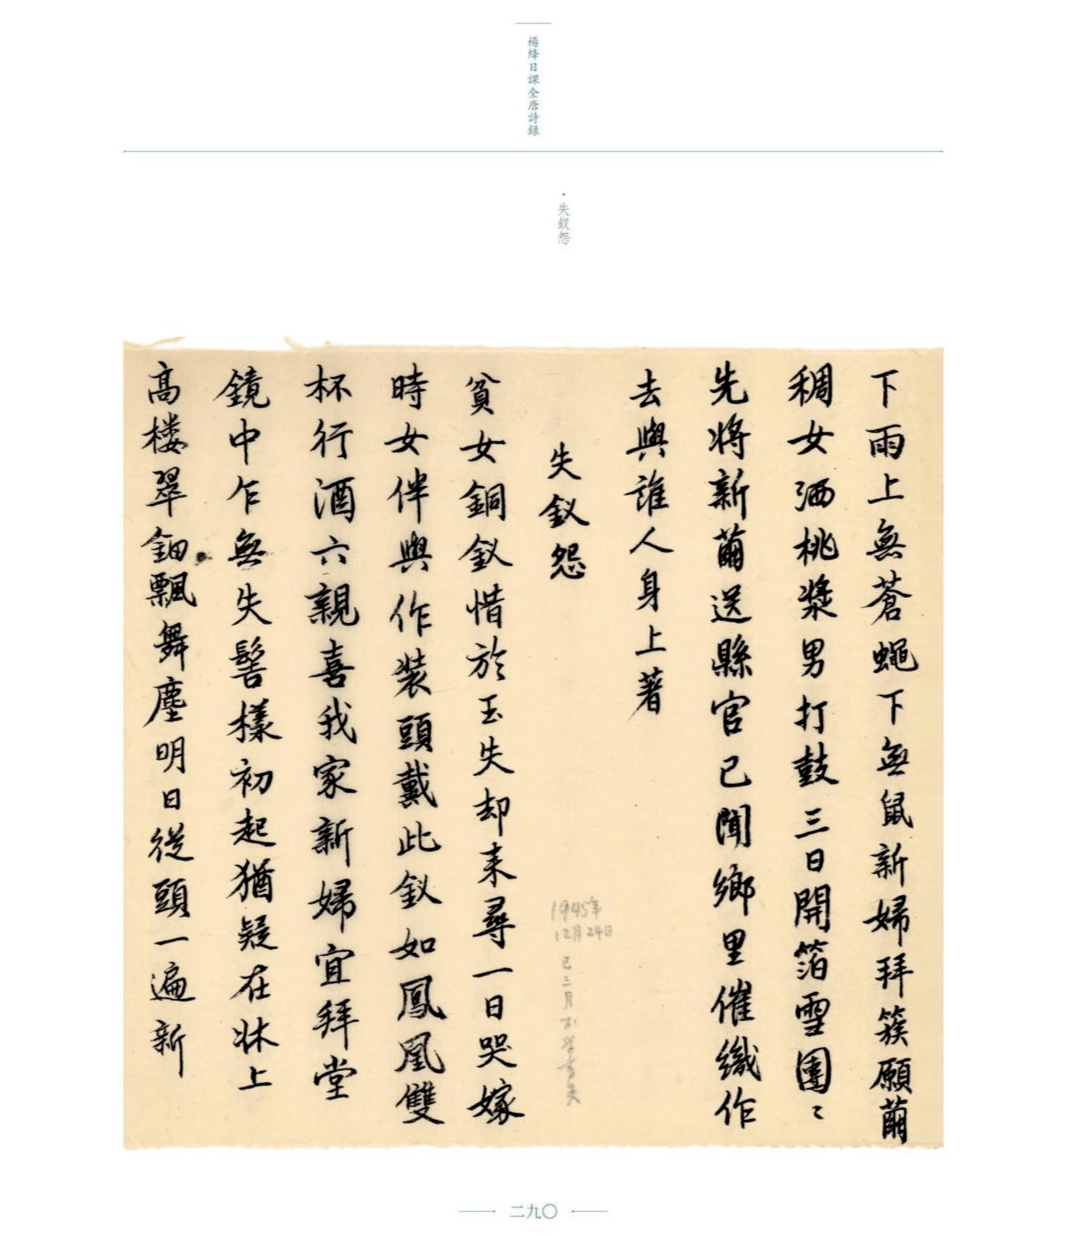 楊絳日課全唐詩錄
·失釵怨
下雨上無蒼蠅下無鼠新婦拜簇願繭
稠女洒桃漿男打鼓三日開箔雪團〻
先將新繭送縣官已聞鄉里催織作
去與誰人身上著
失釵怨
貧女銅釵惜於玉失却来尋一日哭嫁
時女伴與作装頭戴此釵如鳳凰雙
杯行酒六親喜我家新婦宜拜堂
鏡中乍無失髻樣初起猶疑在牀上
高楼翠鈿飄舞塵明日從頭一遍新
1945年
12月24日
已三月不學書矣
二九〇